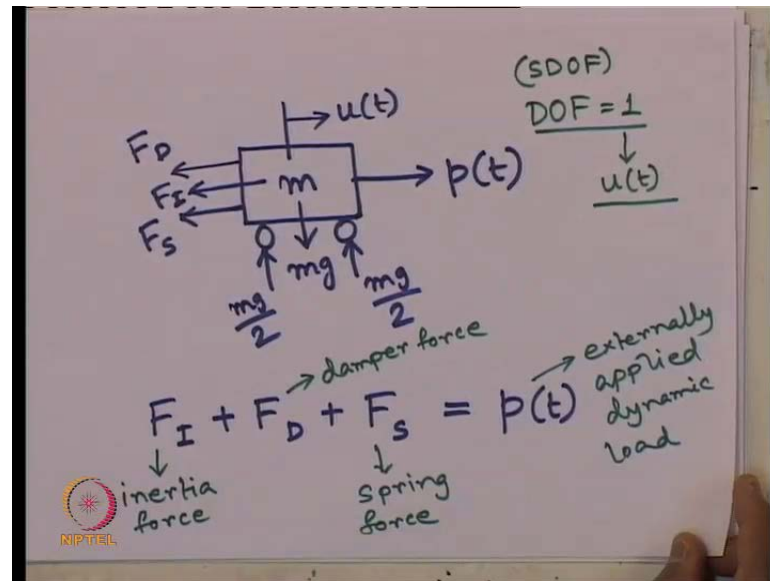 (SDOF)
DOF = 1
u(t)
u(t)
F_D
F_I
F_S
m
p(t)
mg
mg/2
mg/2
damper force
F_I + F_D + F_S = p(t)
externally
applied
dynamic
load
inertia
force
spring
force
NPTEL